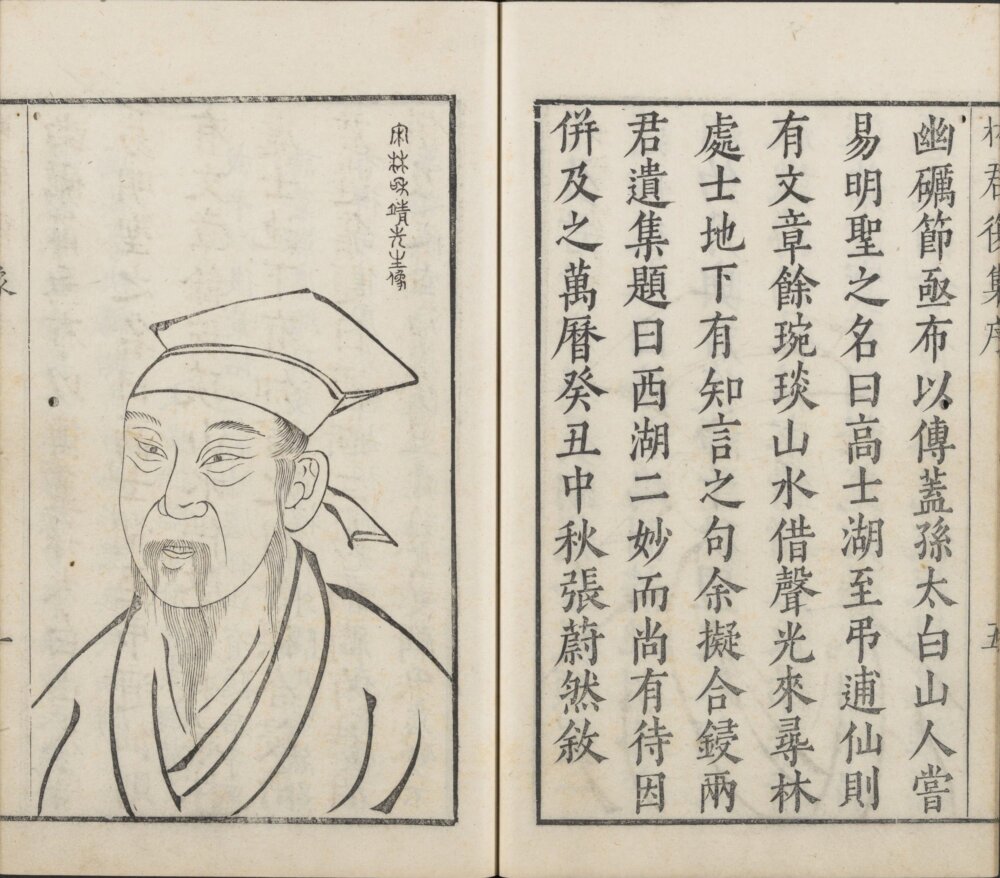 林君復集序
五
幽礪節亟布以傳蓋孫太白山人嘗
易明聖之名曰高士湖至弔逋仙則
有文章餘琬琰山水借聲光來尋林
處士地下有知言之句余擬合鋟兩
君遺集題曰西湖二妙而尚有待因
併及之萬曆癸丑中秋張蔚然敘
宋林和靖先生像
像
一